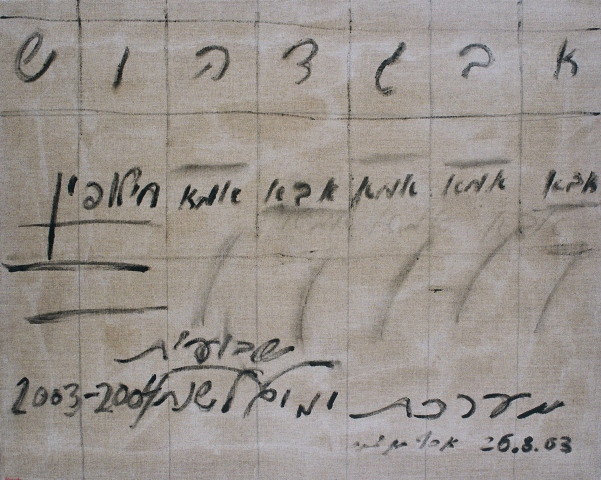 א ב ג ד ה ו ש
אבא אמא אמא אבא אמא חילופין
שבועית
מערכת לשנת 2003-2004
26.8.03